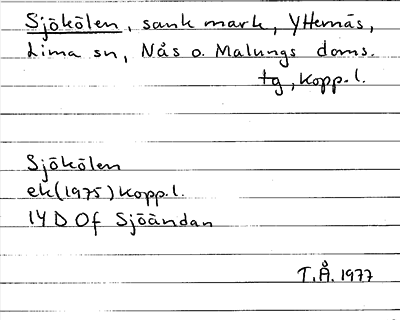 Sjökölen, sank mark, Ytternäs,
Lima sn, Nås o. Malungs doms.
tg, Kopp.l.
Sjökölen
ek (1975) Kopp.l.
14 D 0f Sjöändan
T.Å. 1977